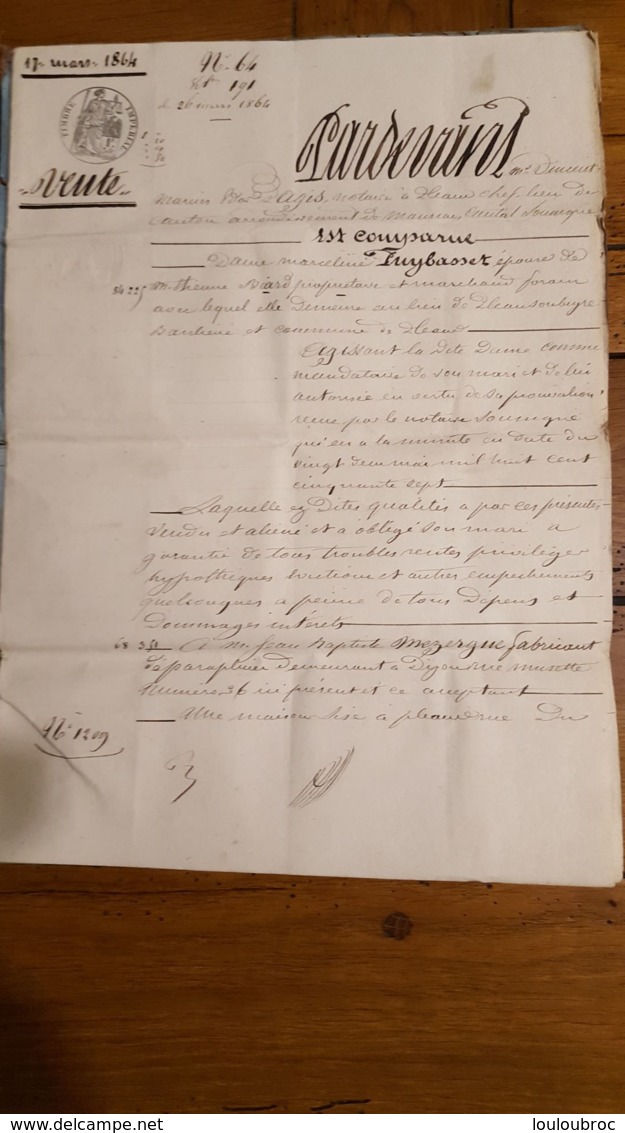 17 mars 1864
N° 64
191
26 mars 1864
TIMBRE IMPERIAL
Vente
Pardevant me Vincent
notaire à Pleaux chef lieu de
Canton arrondissement de Mauriac Cantal Soussigné
Est Comparue
Dame marceline Puybasset épouse de
propriétaire et marchand forain
avec lequel elle demeure au lieu de Pleausoubeyre
Banlieue et commune de Pleaux
Agissant la dite Dame comme
mandataire de son mari et de lui
autorisée en vertu de sa procuration
reçue par le notaire Soussigné
qui en a la minute en date du
vingt deux mai mil huit cent
cinquante sept
Laquelle ez Dites qualités a par ces présentes
vendu et aliéné et a obligé son mari a
garantie de tous troubles rentes privilèges
hypothèques évictions et autres empechements
quelconques a peine de tous Depens et
Dommages intérets
68 A mr. Jean Baptiste Mezergue fabricant
de parapluie demeurant a Dijon rue musette
numero 36 ici présent et ce acceptant
Une maison sise à pleaux rue Du
N° 1209
delcampe.net
louloubroc